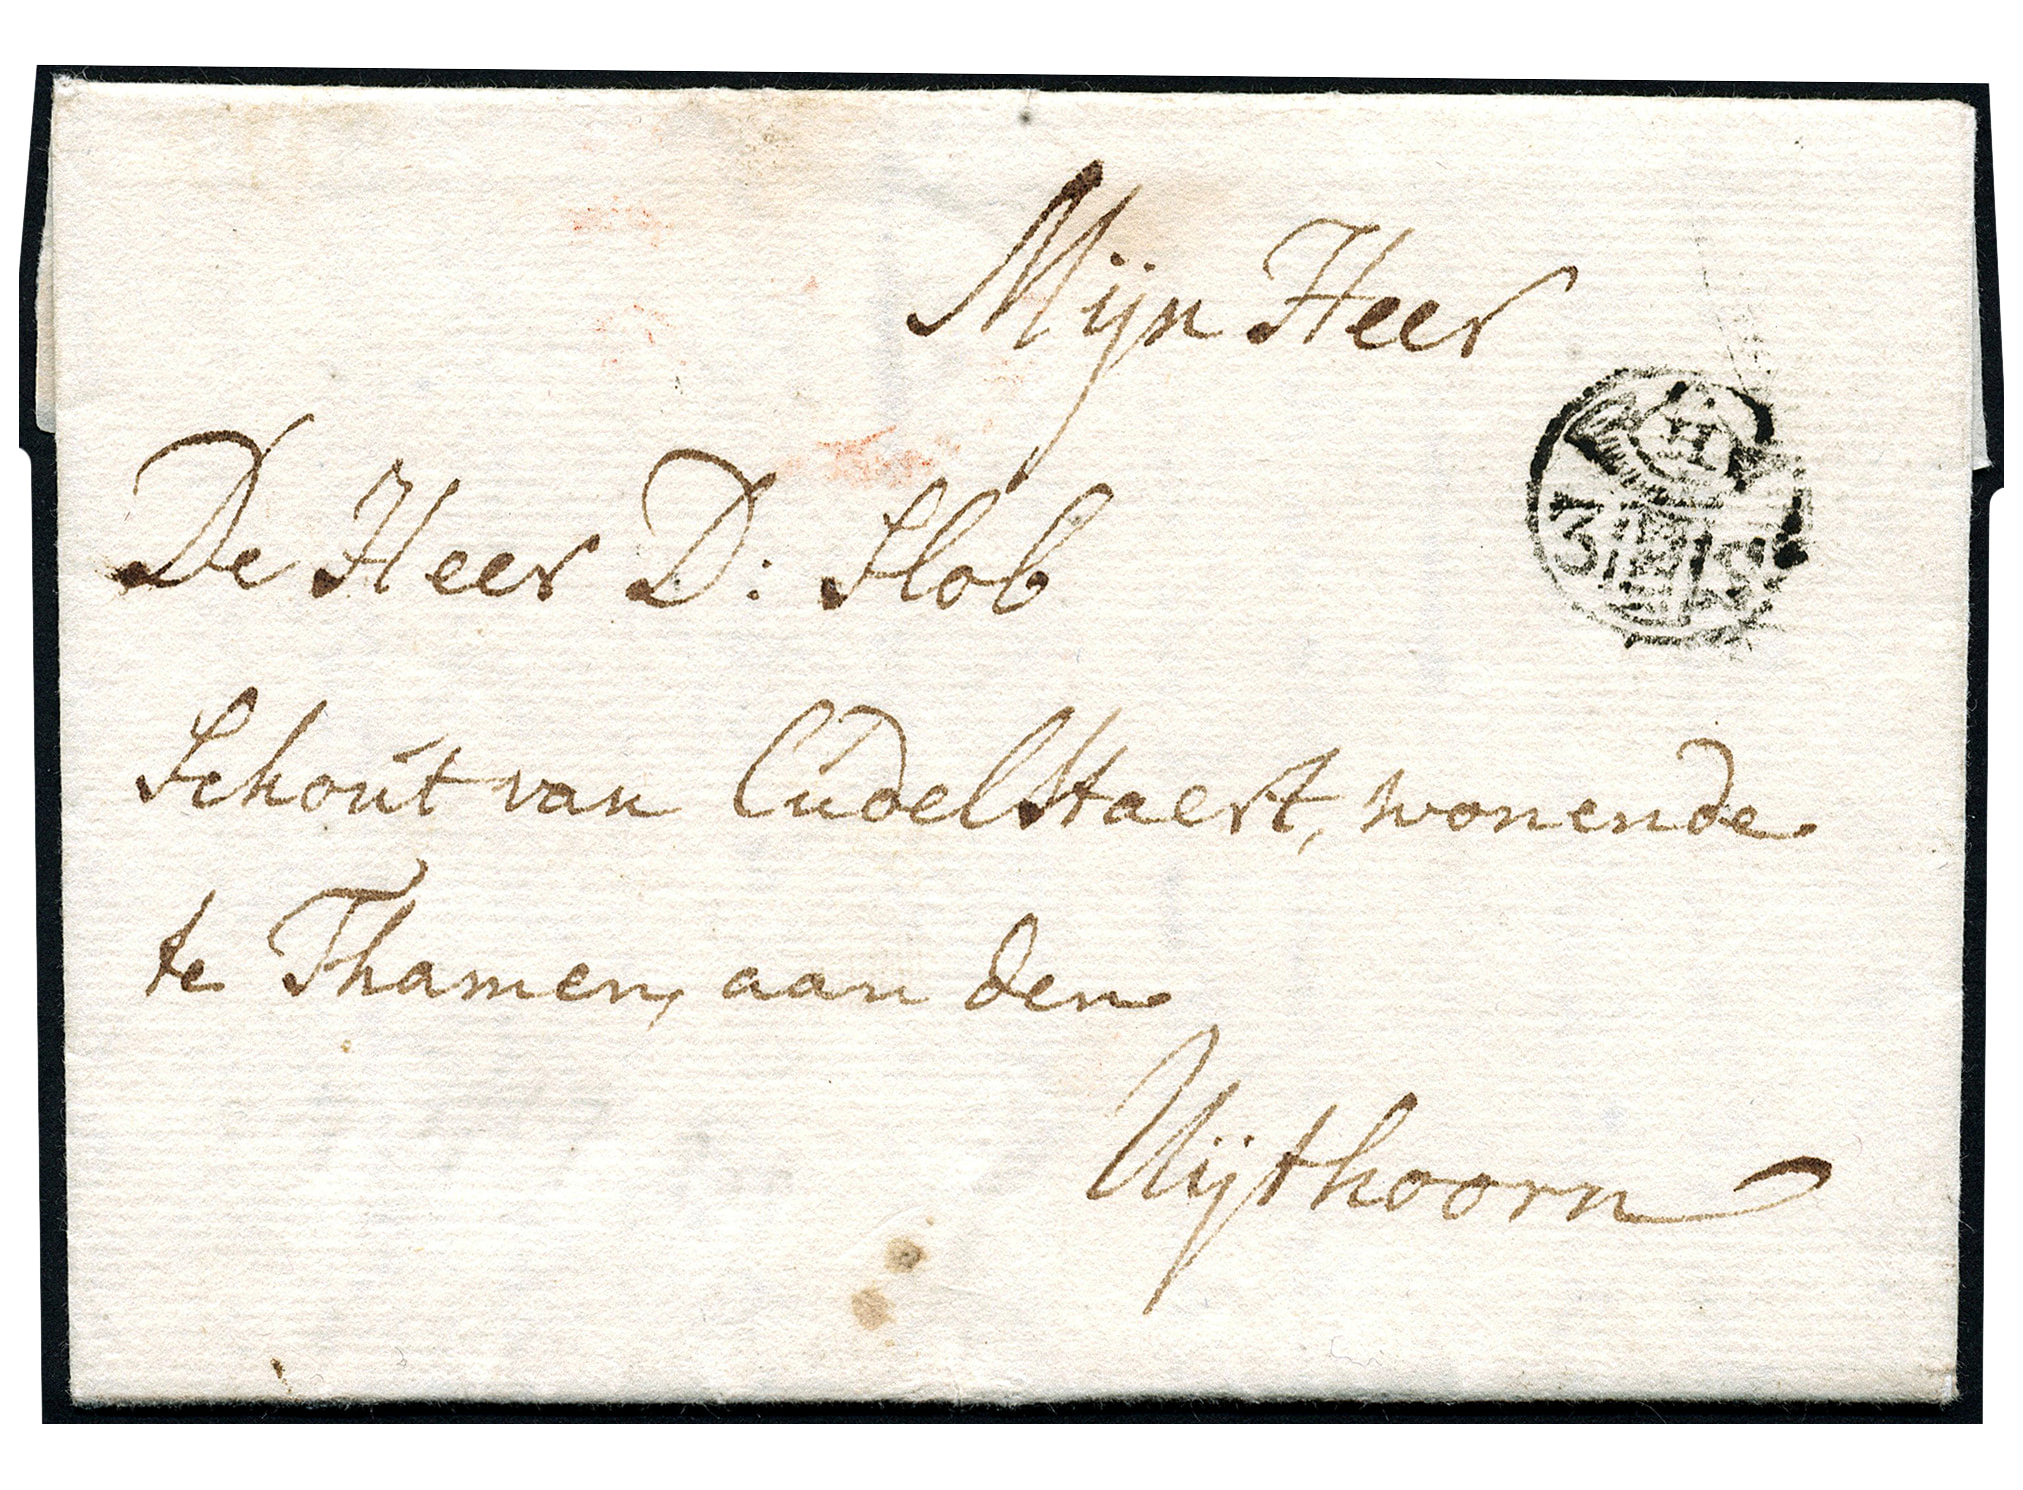 Mijn Heer
H
3 S
De Heer D: Slob
Schout van Cudelstaert, wonende
te Thamen, aan den
Uijthoorn